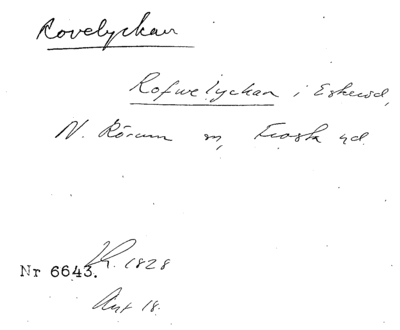 Rovelyckan
Rofwe lyckan i Eskerod,
N. Rörum sn, Frosta hd.
Lk. 1828
Nr 6643.
Akt 18.